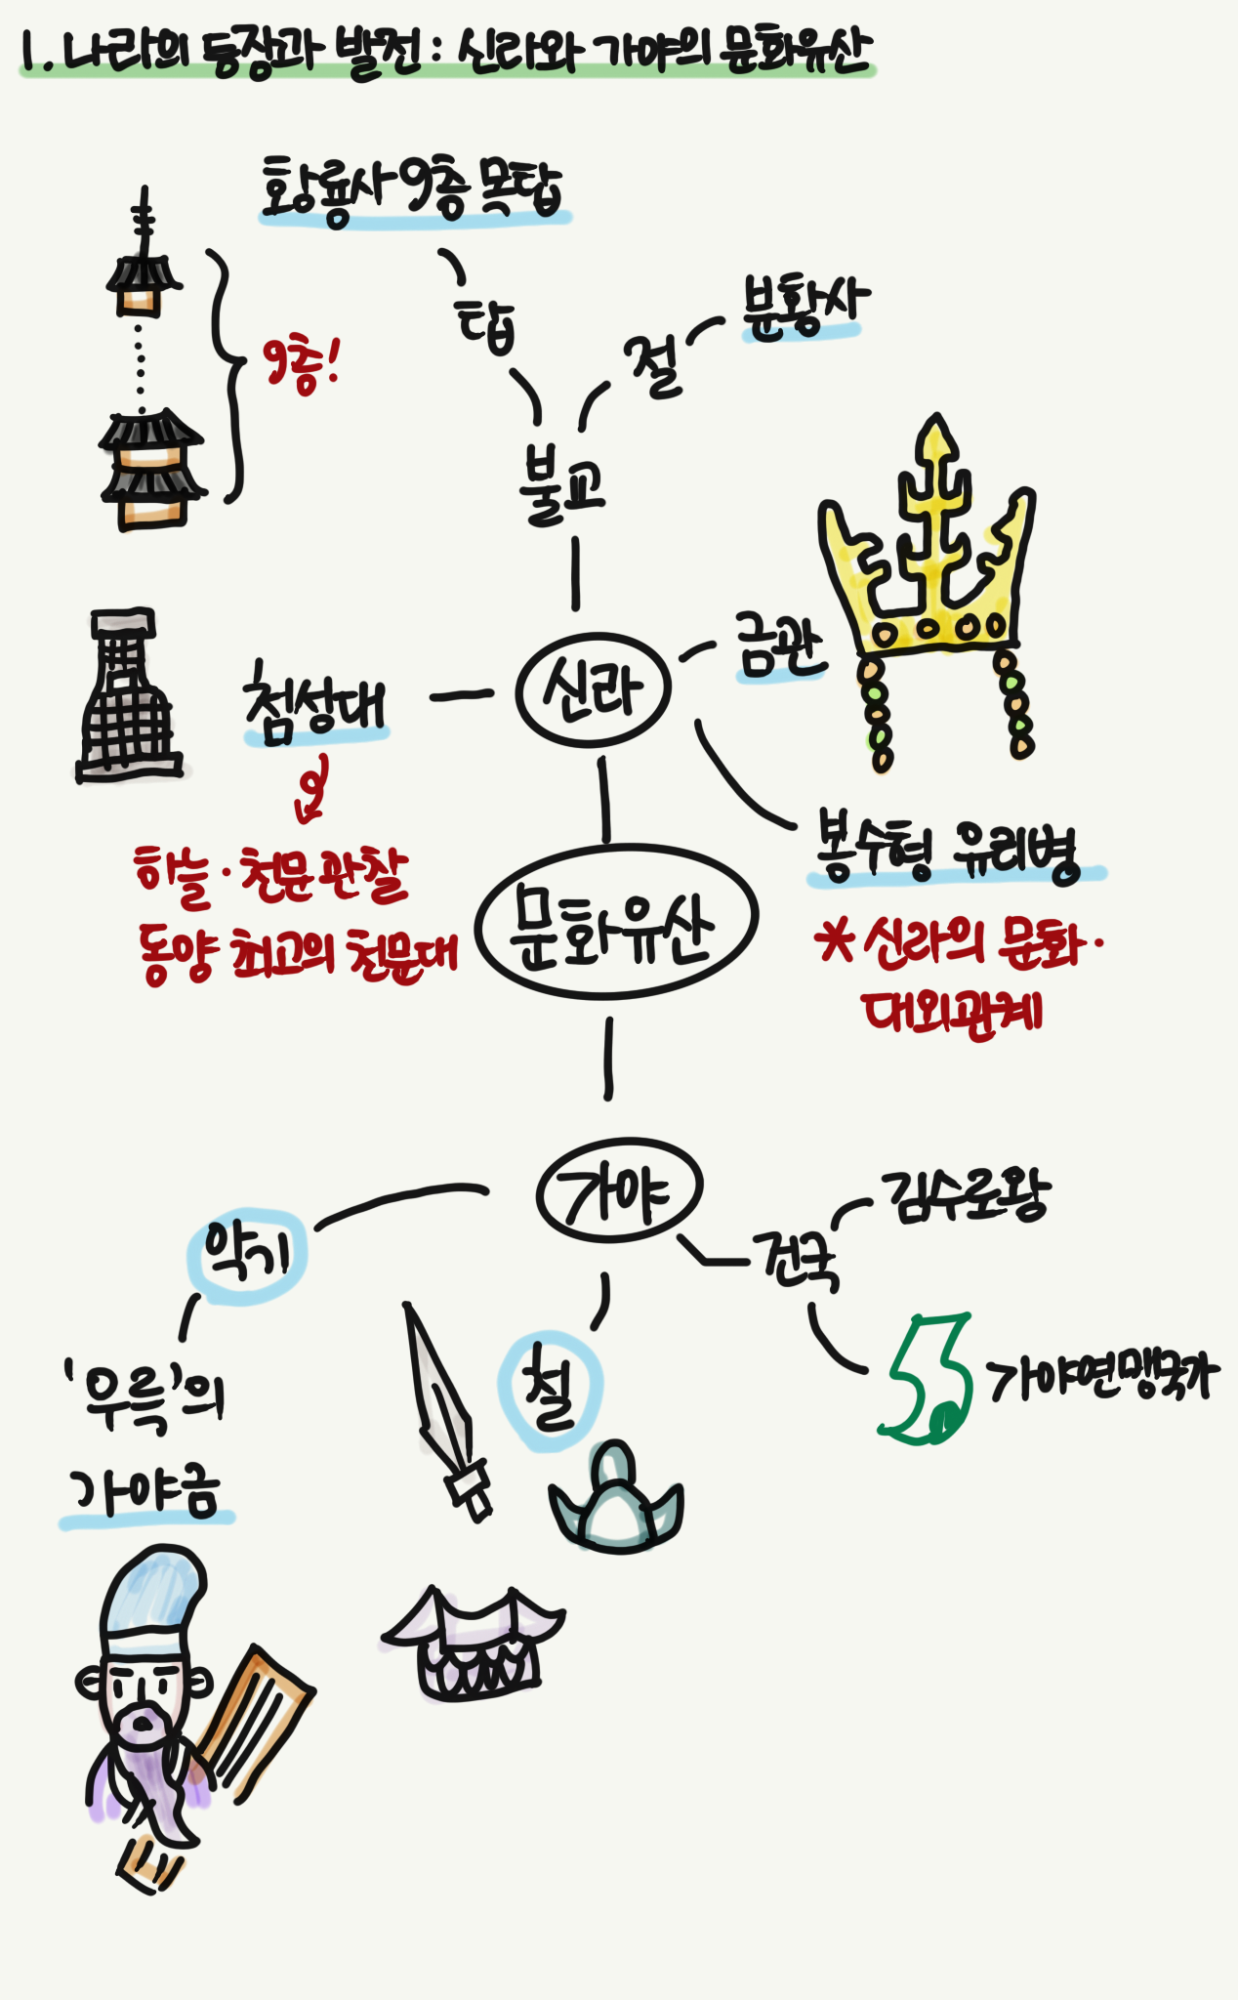 1. 나라의 등장과 발전 : 신라와 가야의 문화유산
황룡사 9층 목탑
탑
분황사
절
9층!
불교
금관
신라
첨성대
봉수형 유리병
하늘·천문 관찰
동양 최고의 천문대
문화유산
* 신라의 문화·
대외관계
가야
김수로왕
건국
악기
철
가야연맹국가
'우륵'의
가야금